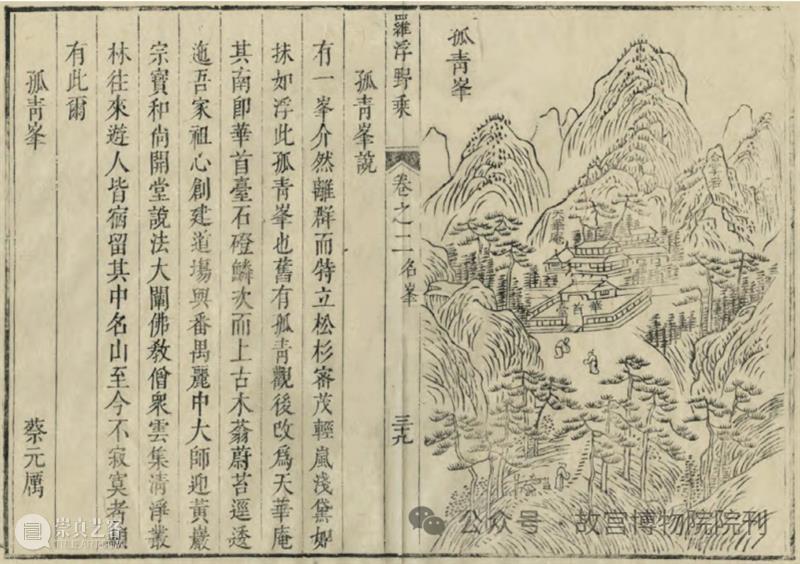 孤青峯
天華庵
華首臺
羅浮野乘 卷之二 名峯 三十九
孤青峯說
有一峯介然離群而特立松杉審茂輕嵐淺黛如
抹如浮此孤青峯也舊有孤青觀後改爲天華庵
其南卽華首臺石磴鱗次而上古木蓊蔚苔逕逶
迤吾家祖心創建道塲與番禺麗中大師迎黃巖
宗寶和尚開堂說法大闡佛教僧衆雲集清淨叢
林往來遊人皆宿留其中名山至今不寂寞者賴
有此爾
孤青峯 蔡元厲
崇真艺客
公众号 · 故宫博物院院刊